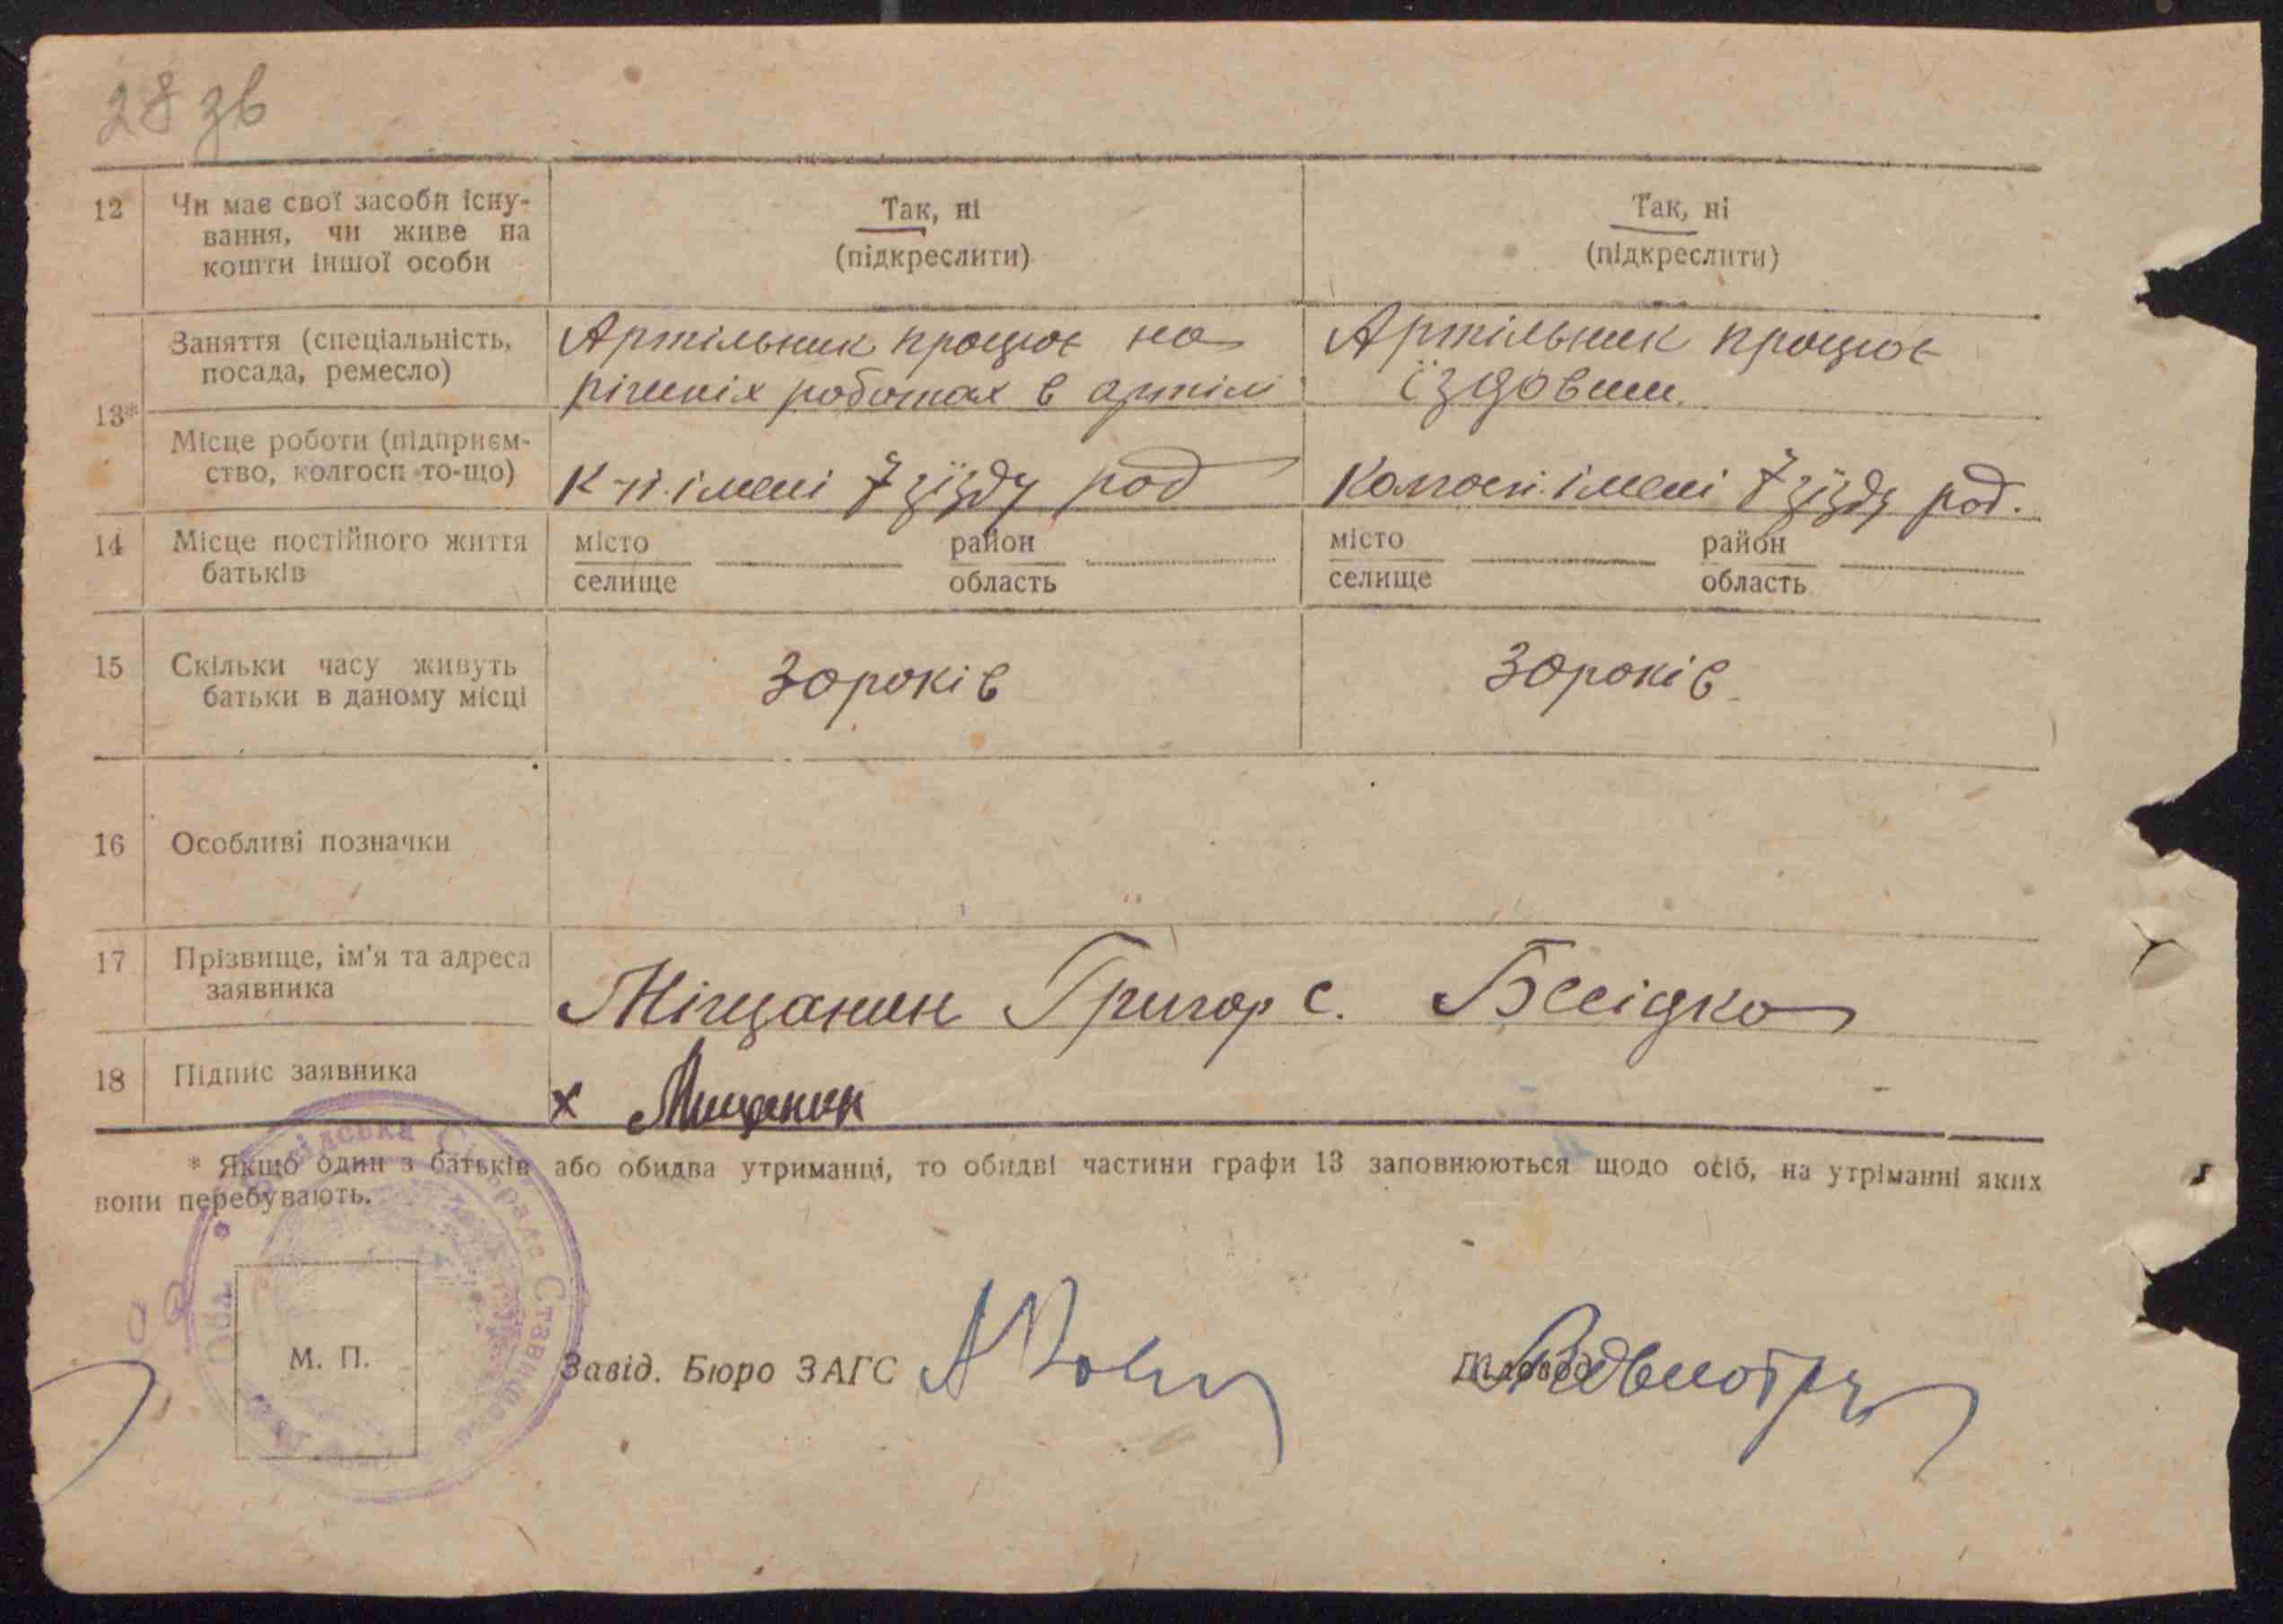 28 зв
12 Чи має свої засоби існу-
вання, чи живе на
кошти іншої особи
Так, ні
(підкреслити)
Так, ні
(підкреслити)
13*
Заняття (спеціальність,
посада, ремесло)
Артільник працює на
різних роботах в артілі
Артільник працює
їздовим.
Місце роботи (підприєм-
ство, колгосп то-що)
імені 7 зїзду рад
Колгосп. імені 7 зїзду рад.
14 Місце постійного життя
батьків
місто район
селище область
місто район
селище область
15 Скільки часу живуть
батьки в даному місці
30 років
30 років
16 Особливі позначки
17 Прізвище, ім'я та адреса
заявника
Міщанин Григор с. Бесідка
18 Підпис заявника
х Мищанин
* Якщо один з батьків або обидва утриманці, то обидві частини графи 13 заповнюються щодо осіб, на утріманні яких
вони перебувають.
М. П.
Завід. Бюро ЗАГС
Діловод